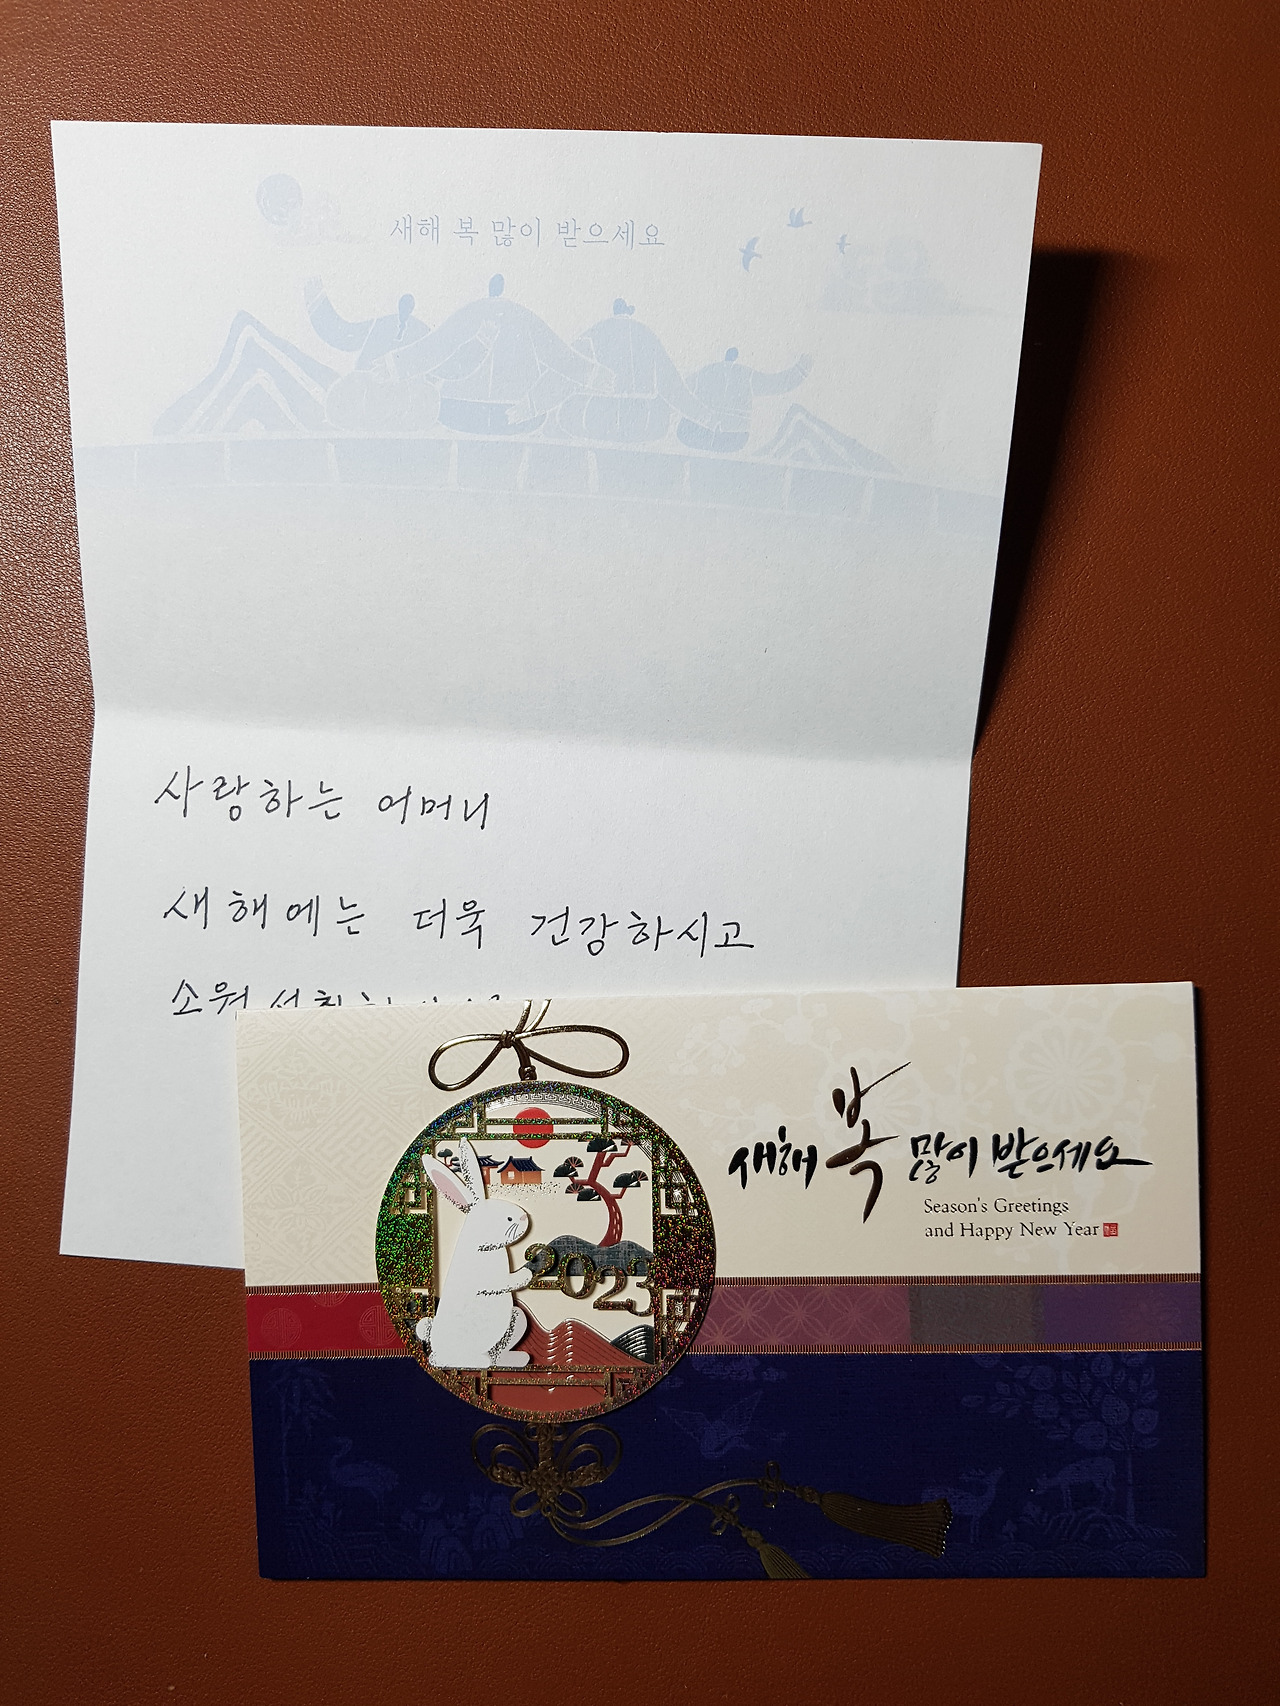 새해 복 많이 받으세요
사랑하는 어머니
새해에는 더욱 건강하시고
새해 복 많이 받으세요
Season's Greetings
and Happy New Year
2023